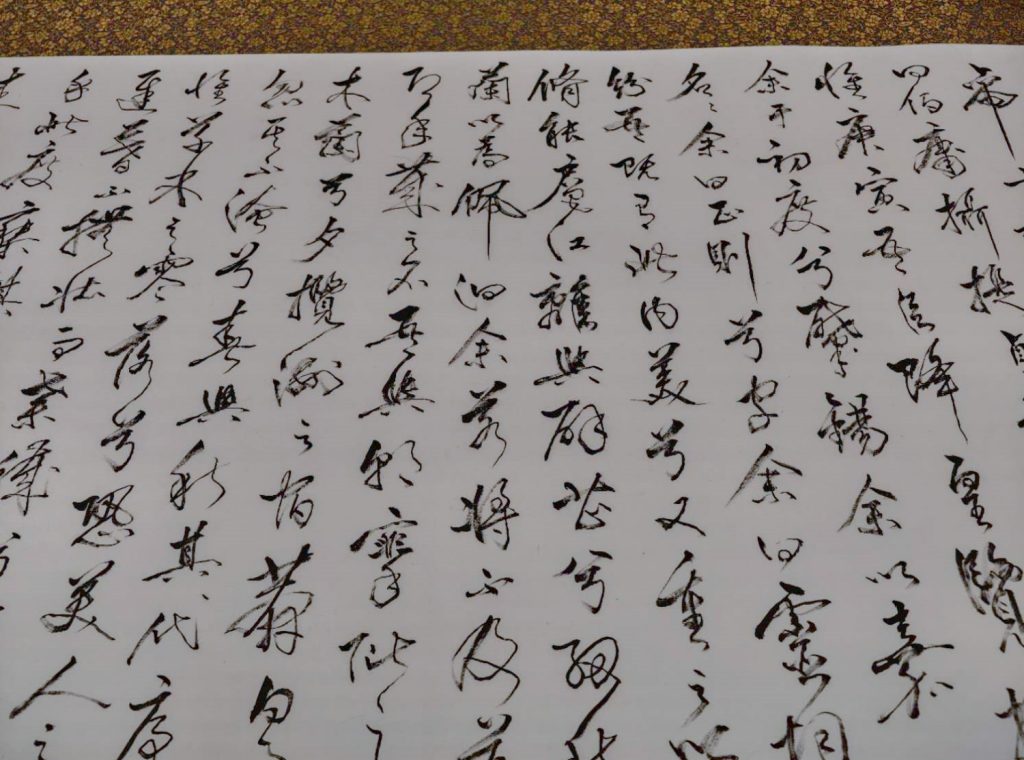 曰伯庸攝提貞
惟庚寅吾以降皇覽揆
余于初度兮肇錫余以嘉
名〻余曰正則兮字余曰靈均
紛吾既有此内美兮又重之以
脩能扈江離與辟芷兮紉秋
蘭以為佩汩余若將不及兮
恐年歲之不吾與朝搴阰之
木蘭兮夕攬洲之宿莽日月
忽其不淹兮春與秋其代序
惟草木之零落兮恐美人之
遲暮不撫壯而棄穢兮
乎此度乘騏